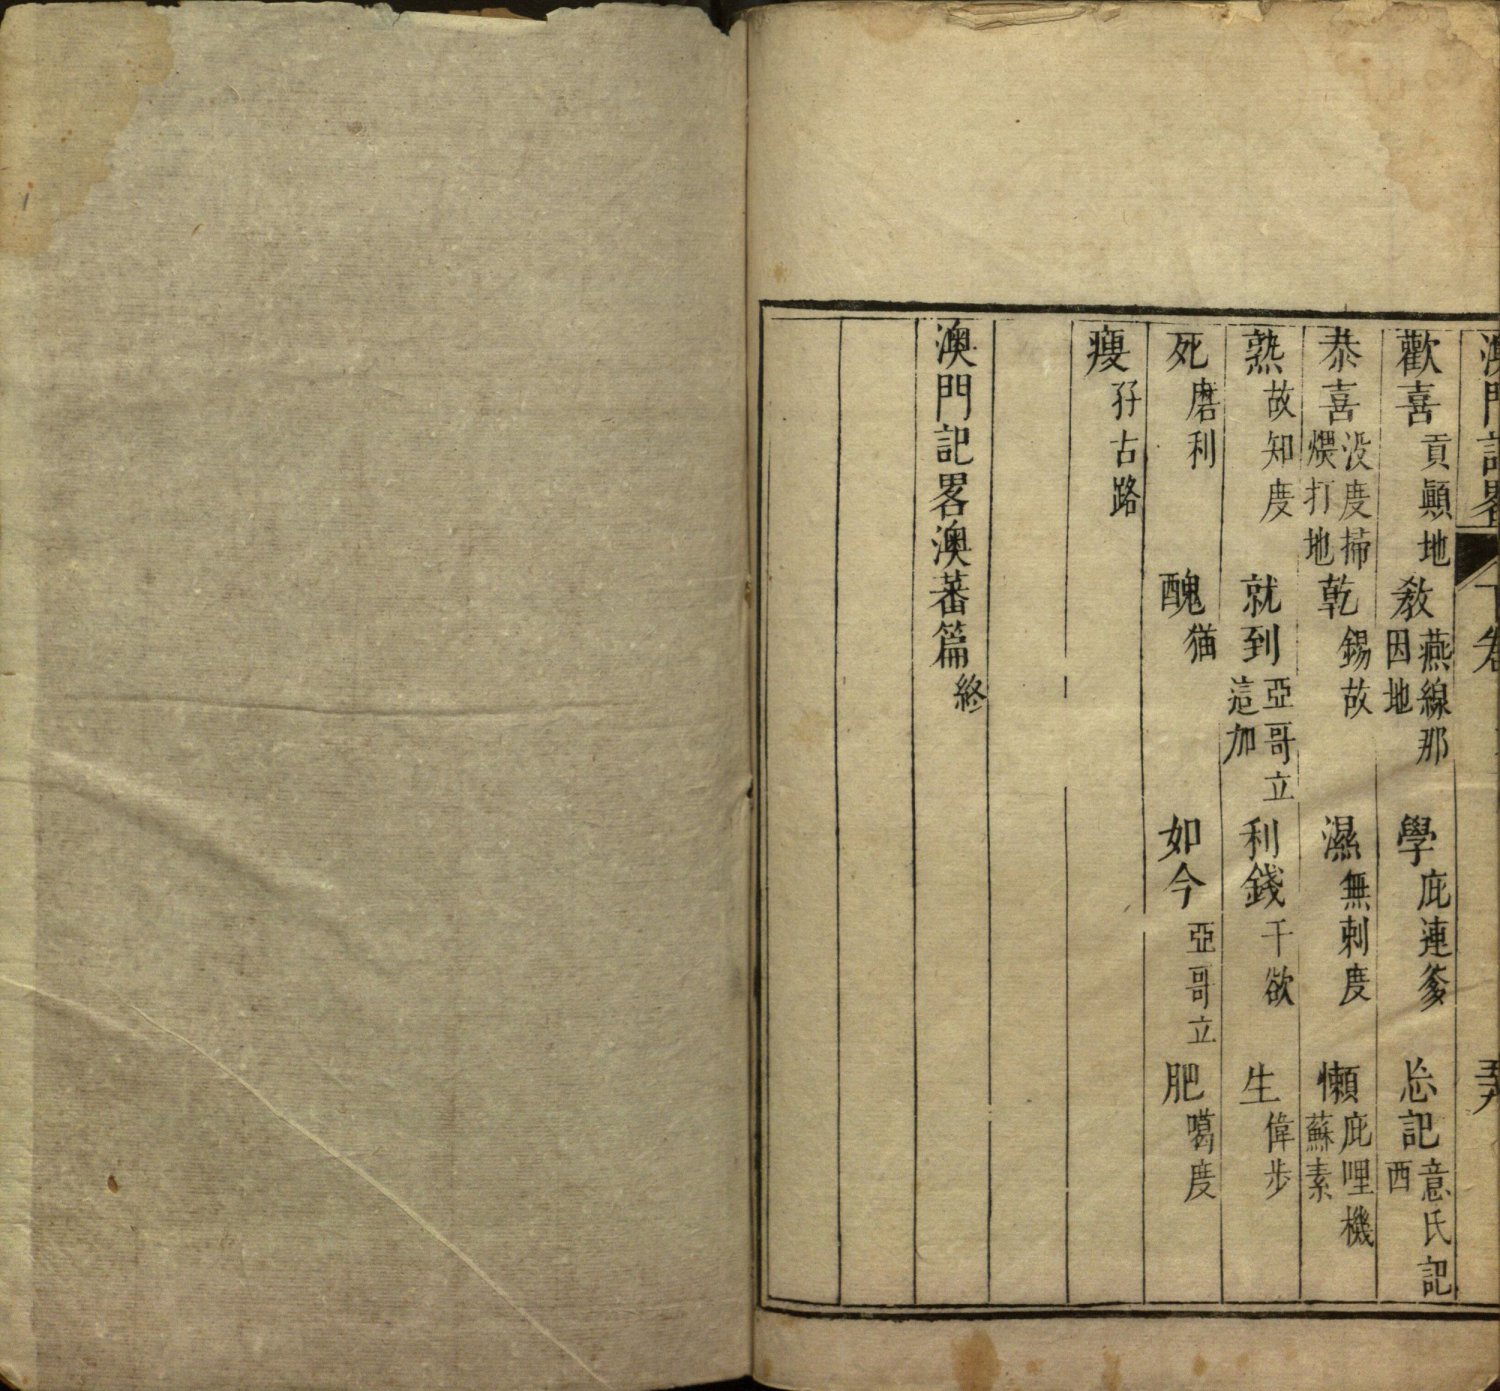 澳門記畧 下卷
歡喜貢顚地 敎燕線那因地 學庇連爹 忘記意氏記西
恭喜没度掃煨打地 乾錫故 濕無剌度 懶庇哩機蘇素
熟故知度 就到亞哥立這加 利錢干欲 生偉步
死磨利 醜猫 如今亞哥立 肥噶度
瘦孖古路
澳門記畧澳蕃篇終